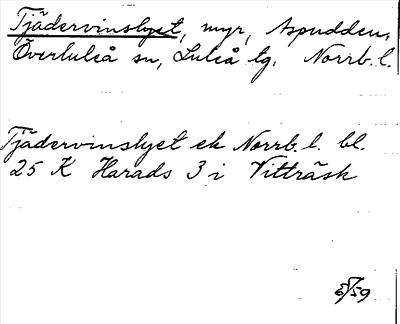 Tjädervinslyet, myr, Aspudden,
Överluleå sn, Luleå tg. Norrb. l.
Tjädervinslyet ek Norrb. l. bl.
25 K Harads 3 i Vitträsk
5/59